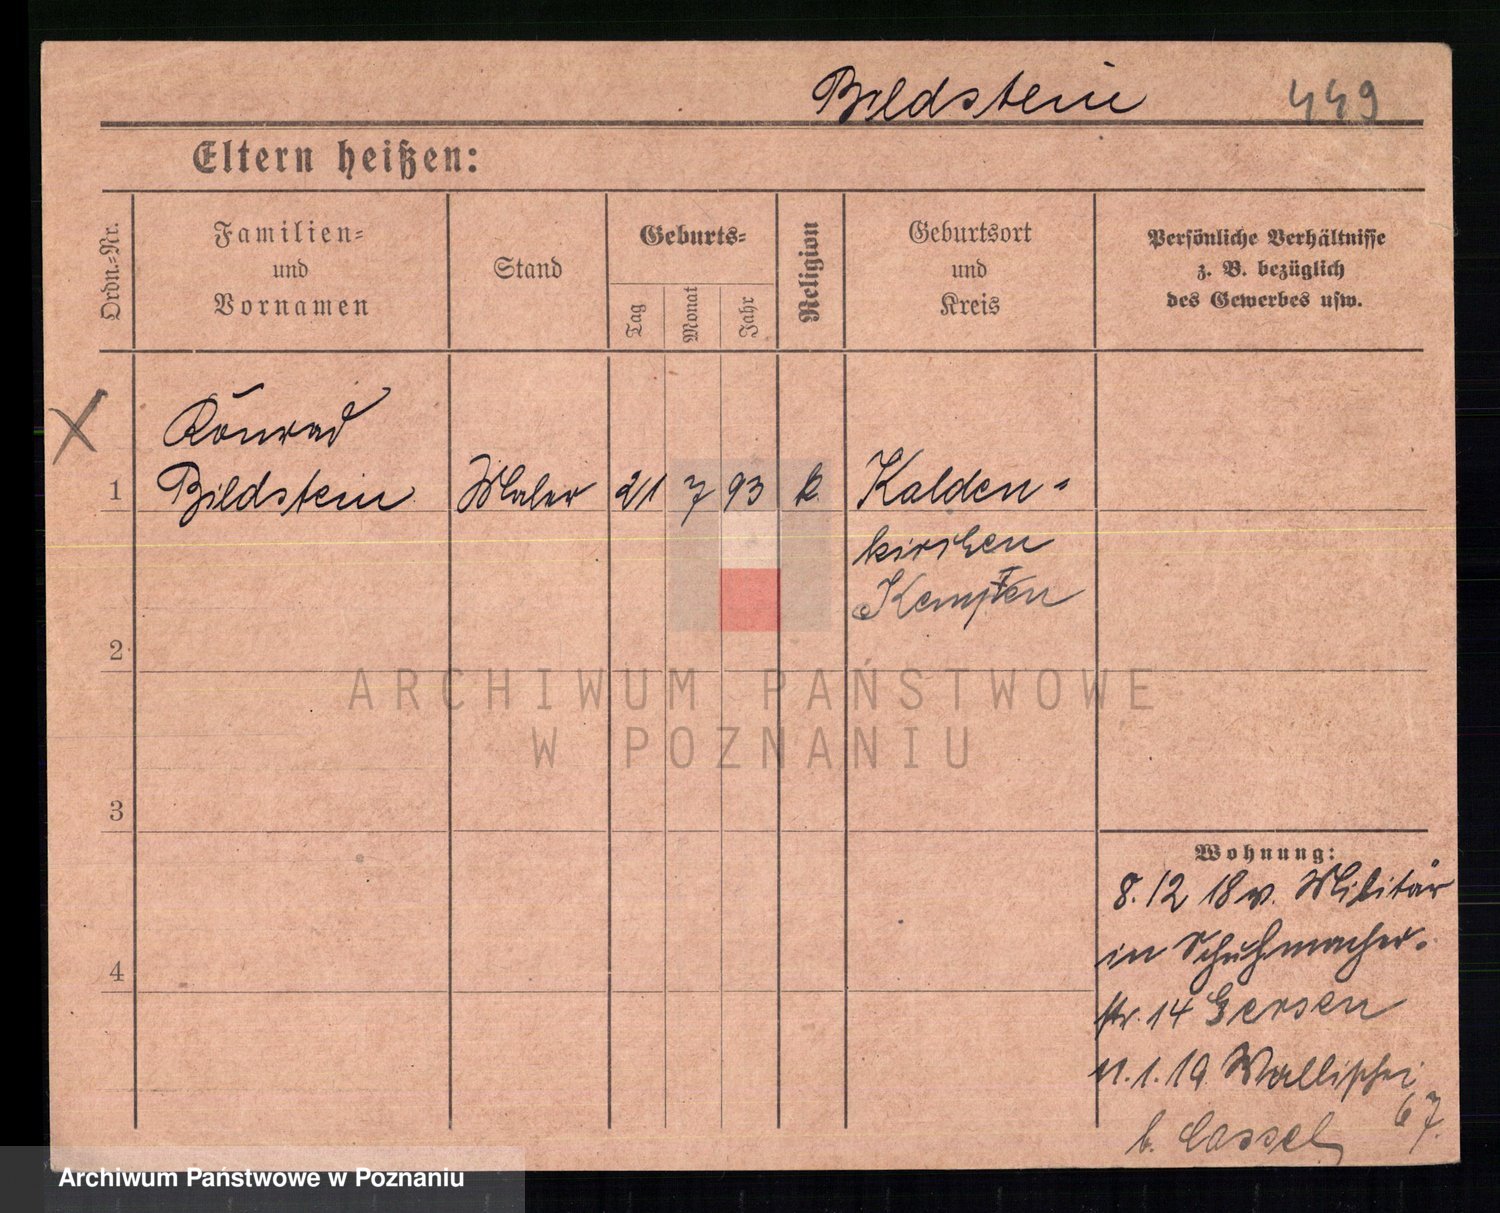 Bildstein 449
Eltern heißen:
Ordn.=Nr.
Familien=
und
Vornamen
Stand
Geburts=
Tag
Monat
Jahr
Religion
Geburtsort
und
Kreis
Persönliche Verhältnisse
z. B. bezüglich
des Gewerbes usw.
Konrad
1 Bildstein Maler 21 7 93 k. Kalden-
kirchen
Kempten
2
3
4
Wohnung:
8.12 18 v. Militär
in Schuhmacher-
str. 14 Gersen
11.1.19 Wallischei
67.
b. Cassel
ARCHIWUM PAŃSTWOWE
W POZNANIU
Archiwum Państwowe w Poznaniu